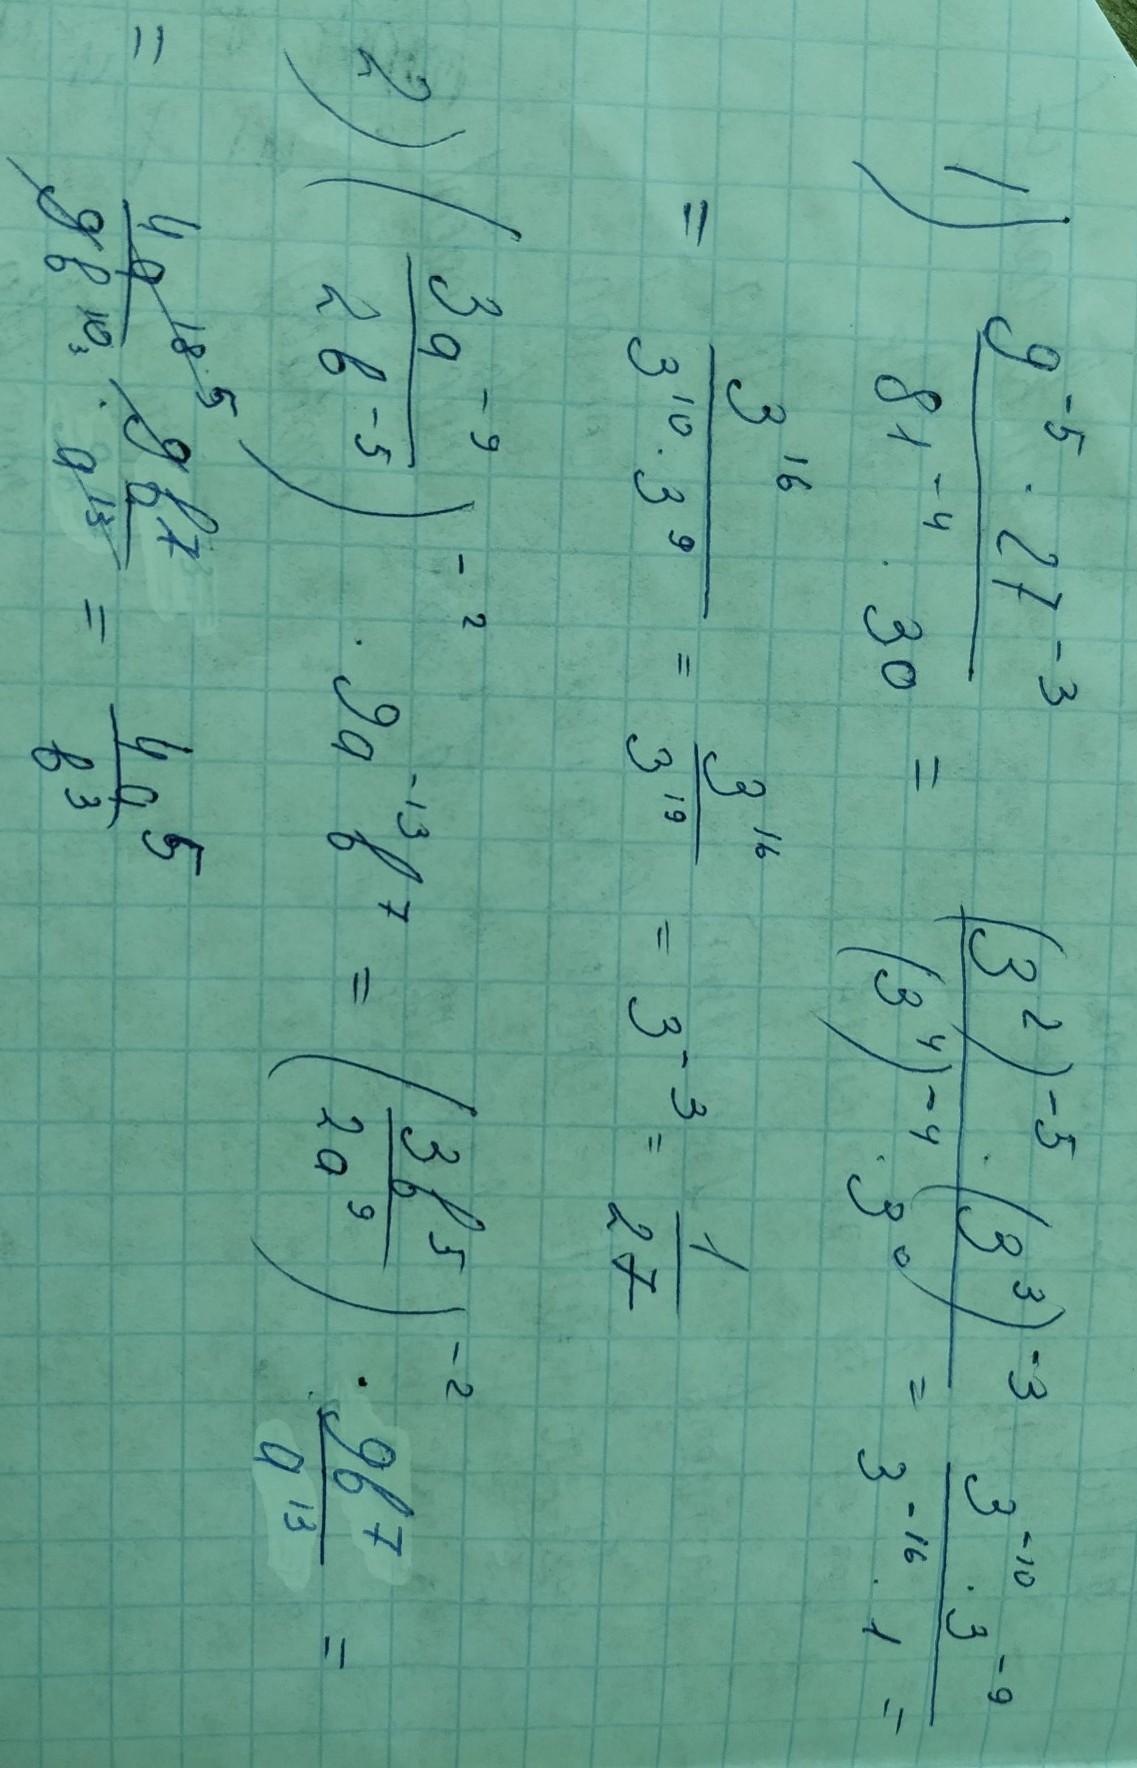 1) 9⁻⁵ · 27⁻³ / 81⁻⁴ · 3⁰ = (3²)⁻⁵ · (3³)⁻³ / (3⁴)⁻⁴ · 3⁰ = 3⁻¹⁰ · 3⁻⁹ / 3⁻¹⁶ · 1 =
= 3¹⁶ / 3¹⁰ · 3⁹ = 3¹⁶ / 3¹⁹ = 3⁻³ = 1 / 27
2) (3a⁻⁹ / 2b⁻⁵)⁻² · 9a⁻¹³b⁷ = (3b⁵ / 2a⁹)⁻² · 9b⁷ / a¹³ =
= 4a¹⁸ ⁵ / 9b¹⁰ ³ · 9b⁷ / a¹³ = 4a⁵ / b³